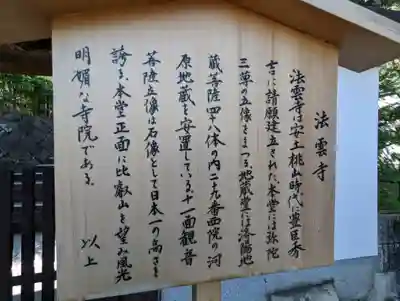 法雲寺
法雲寺は安土桃山時代、豊臣秀
吉に請願建立された。本堂には弥陀
三尊の立像をまつる。地蔵堂には洛陽地
蔵菩薩四十八体の内二十九番西院の河
原地蔵を安置している。十一面観音
菩薩立像は石像として日本一の高さを
誇る。本堂正面に比叡山を望み風光
明媚な寺院である。
以上